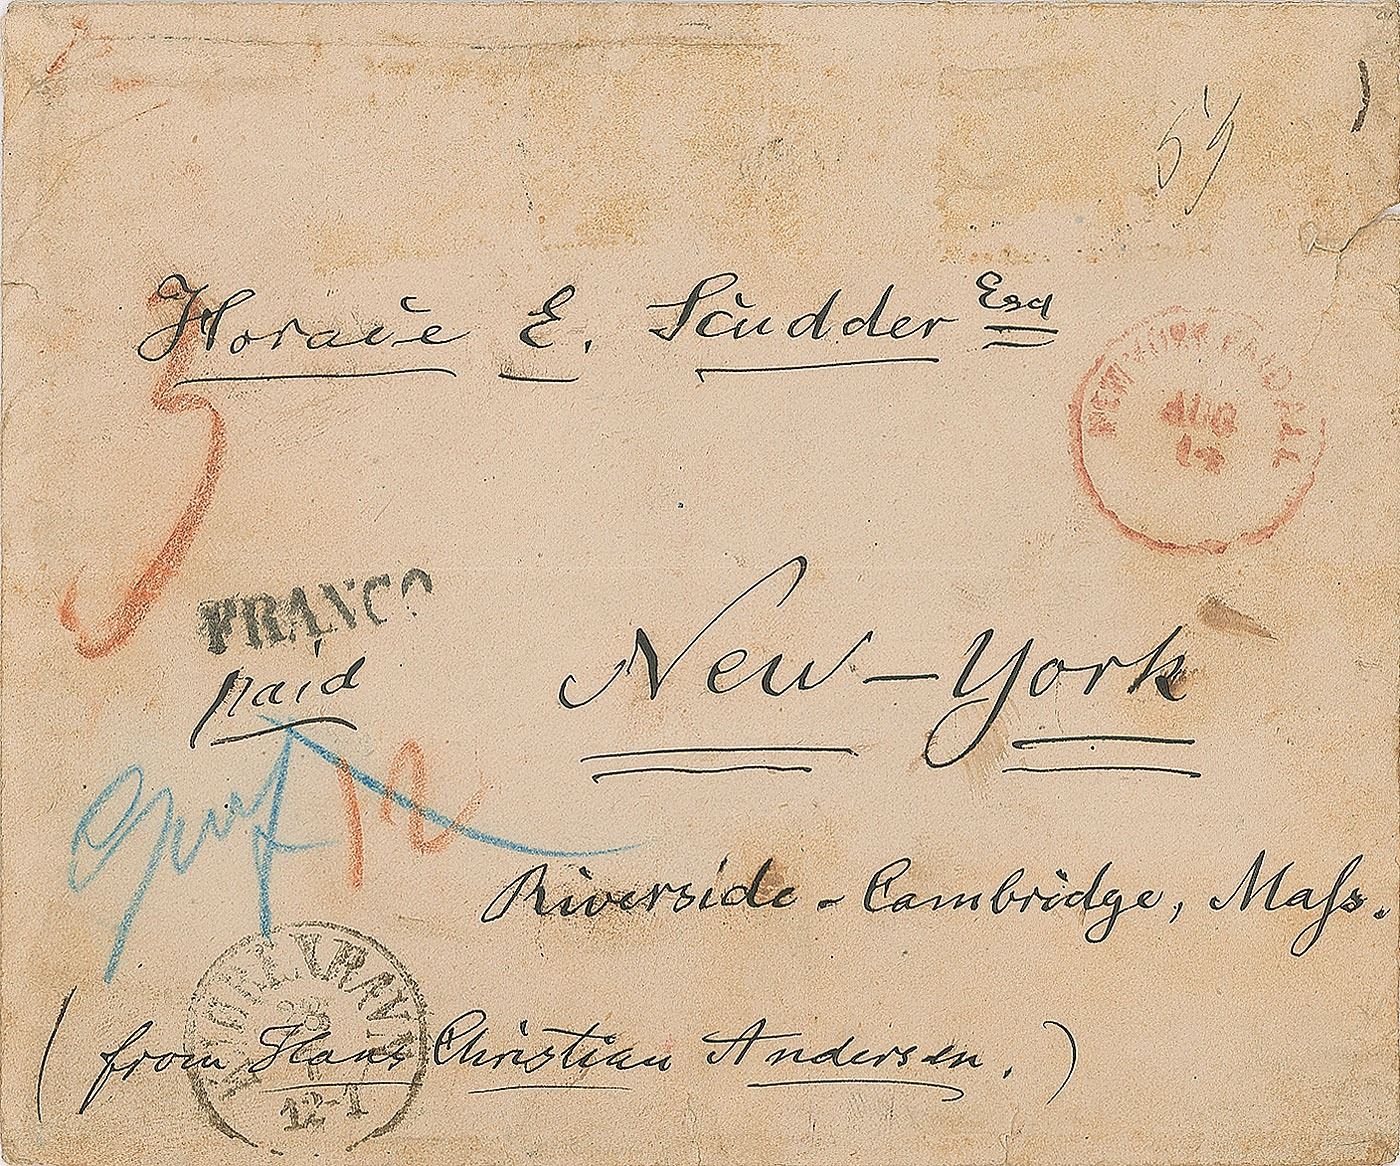 59
Horace E. Scudder Esq
NEW YORK PAID ALL
AUG
FRANCO
paid
New-York
12
Riverside - Cambridge, Mass.
KIØBENHAVN
28
7
12-1
(from Hans Christian Andersen.)